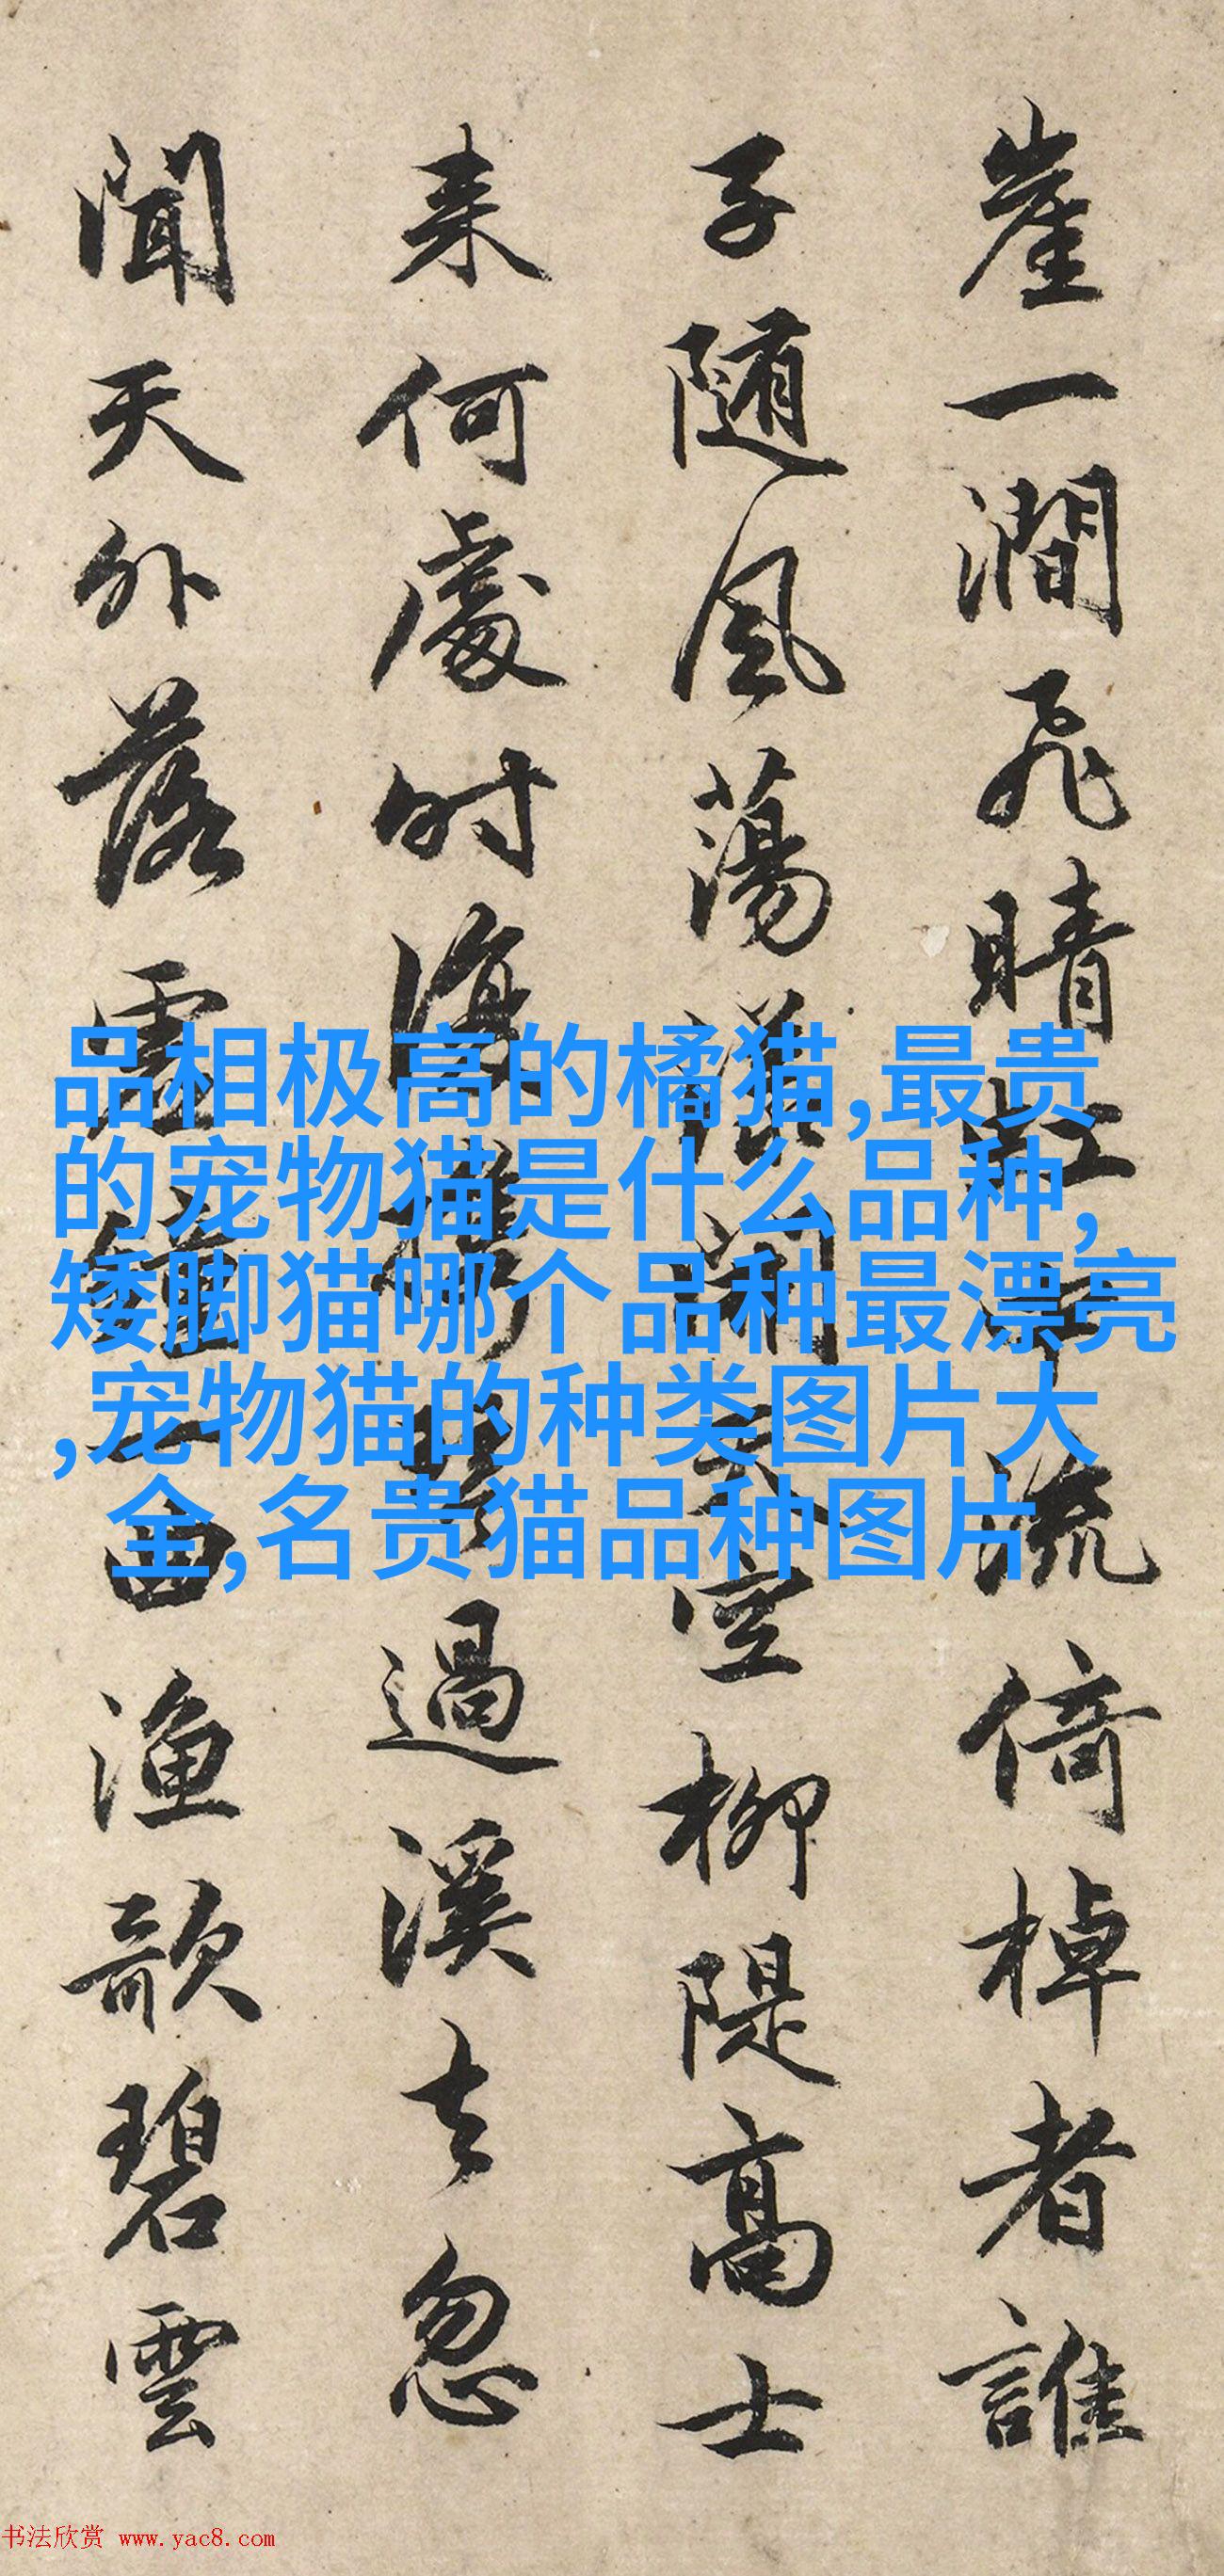 崖一澗飛晴虹中流倚棹者誰
子随風蕩空柳隄高士
来何處时復携琴過溪去忽
聞天外落一曲漁歌碧雲
品相极高的橘猫,最贵
的宠物猫是什么品种,
矮脚猫哪个品种最漂亮
,宠物猫的种类图片大
全,名贵猫品种图片
书法欣赏 www.yac8.com